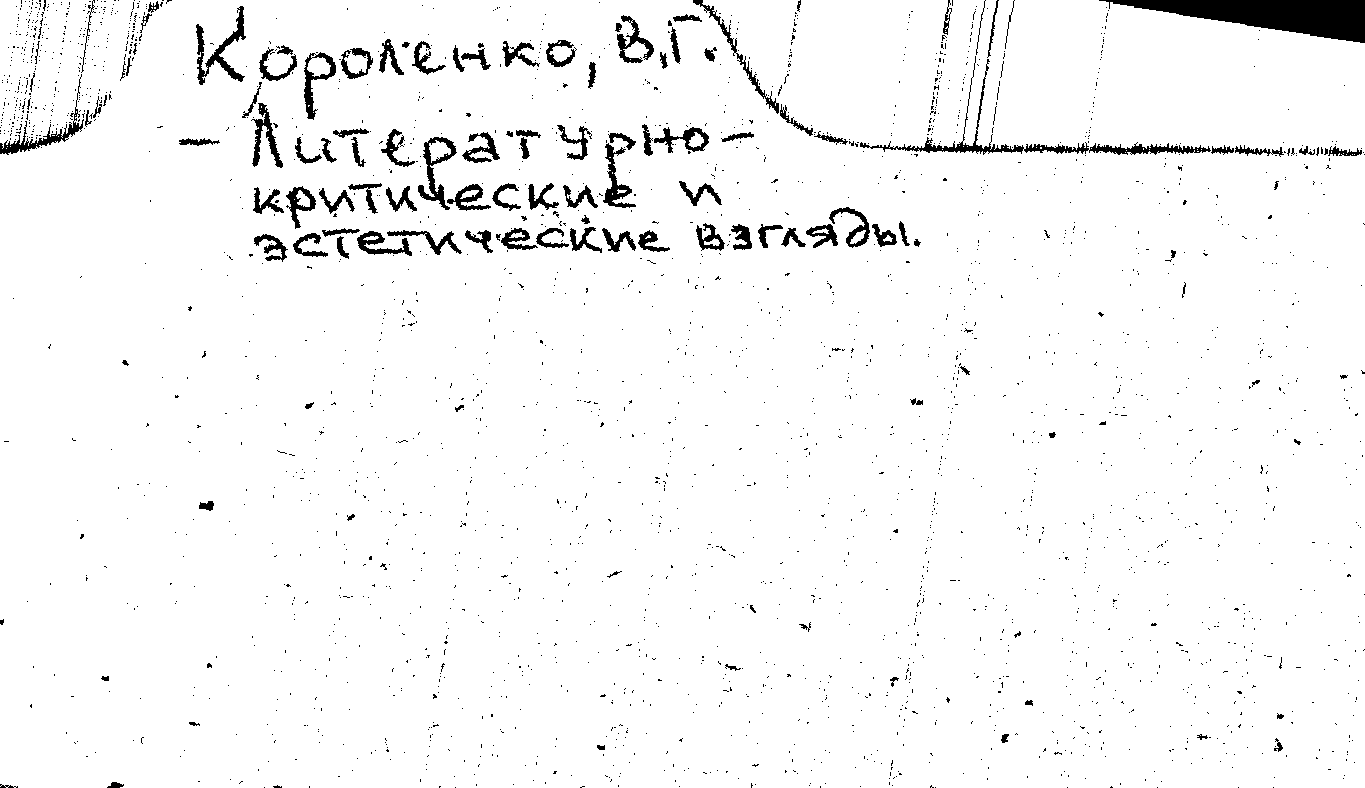 Короленко, В.Г.
– Литературно-
критические и
эстетические взгляды.